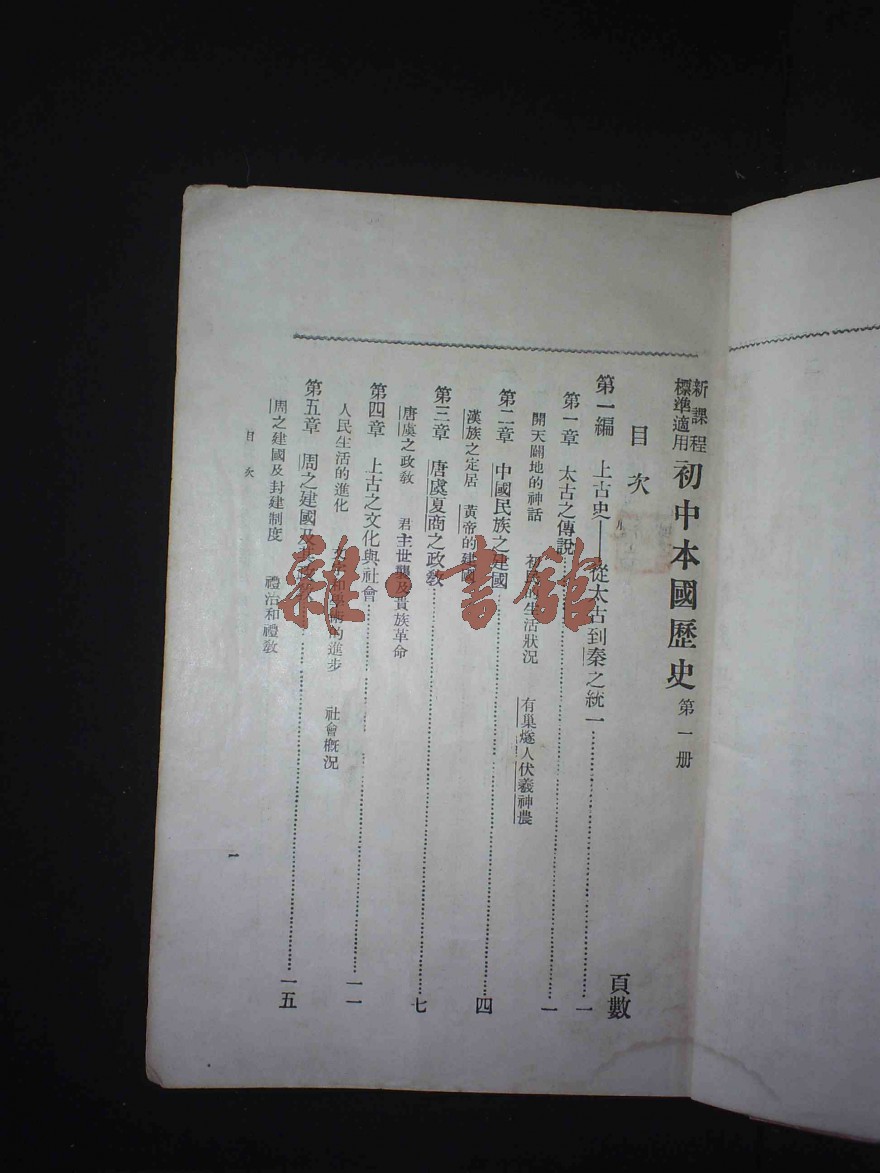 新課程標準適用 初中本國歷史 第一册
目次
頁數
第一編 上古史——從太古到秦之統一……一
第一章 太古之傳說……一
開天闢地的神話 初民的生活狀況 有巢燧人伏羲神農
第二章 中國民族之建國……四
漢族之定居 黃帝的建國
第三章 唐虞夏商之政教……七
唐虞之政教 君主世襲及貴族革命
第四章 上古之文化與社會……一一
人民生活的進化 文字和學術的進步 社會概況
第五章 周之建國及其……一五
周之建國及封建制度 禮治和禮教
目次
一
雜·書館